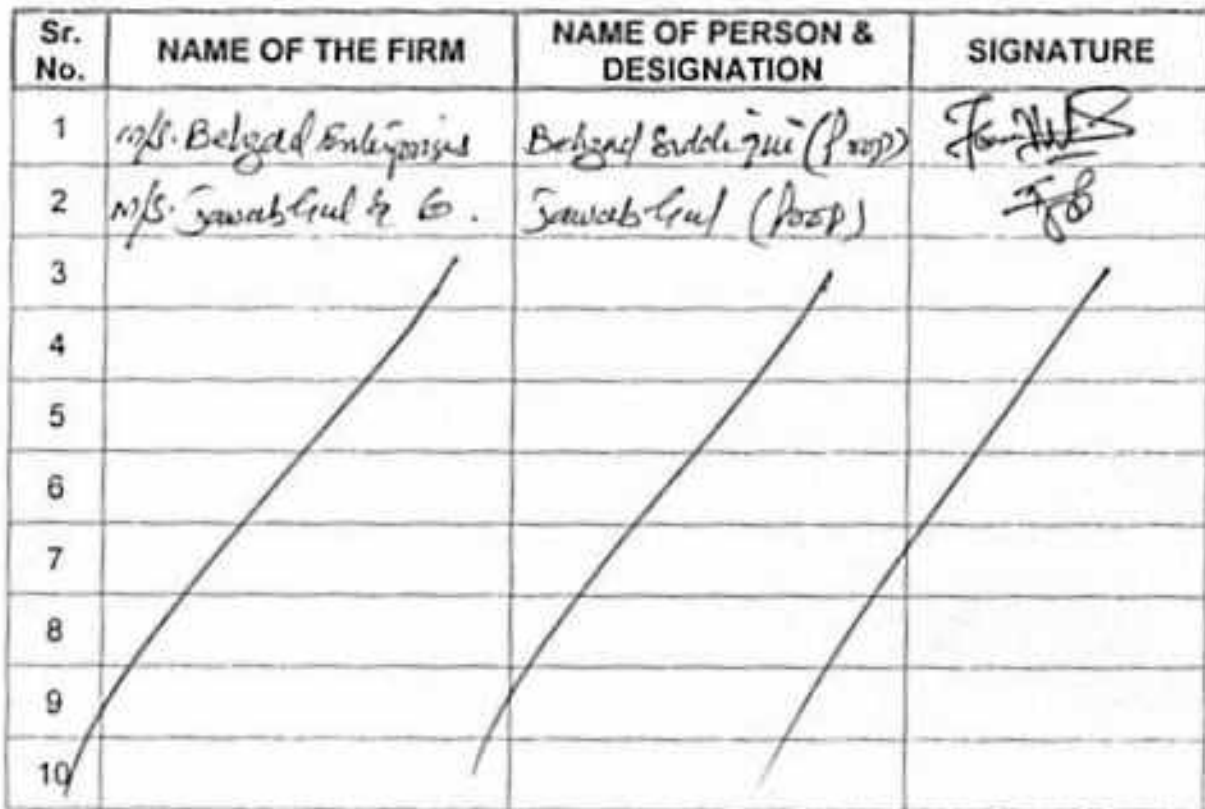 Sr. No. NAME OF THE FIRM NAME OF PERSON & DESIGNATION SIGNATURE
1 M/S. Behzad Enterprises Behzad Siddiqui (Prop)
2 M/S. Jawab Gul & Co. Jawab Gul (Prop)
3
4
5
6
7
8
9
10